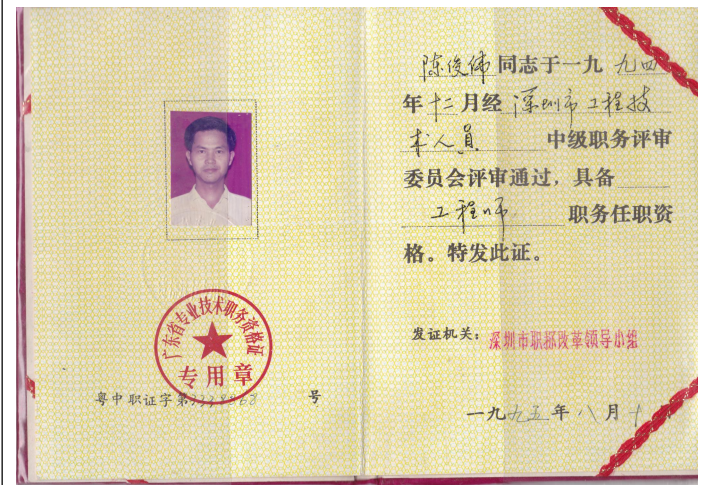 广东省专业技术职务资格证
专用章
粤中职证字第 号
陈俊伟同志于一九九四
年十二月经深圳市工程技
术人员中级职务评审
委员会评审通过，具备
工程师职务任职资
格。特发此证。
发证机关：深圳市职称改革领导小组
一九九五年八月十